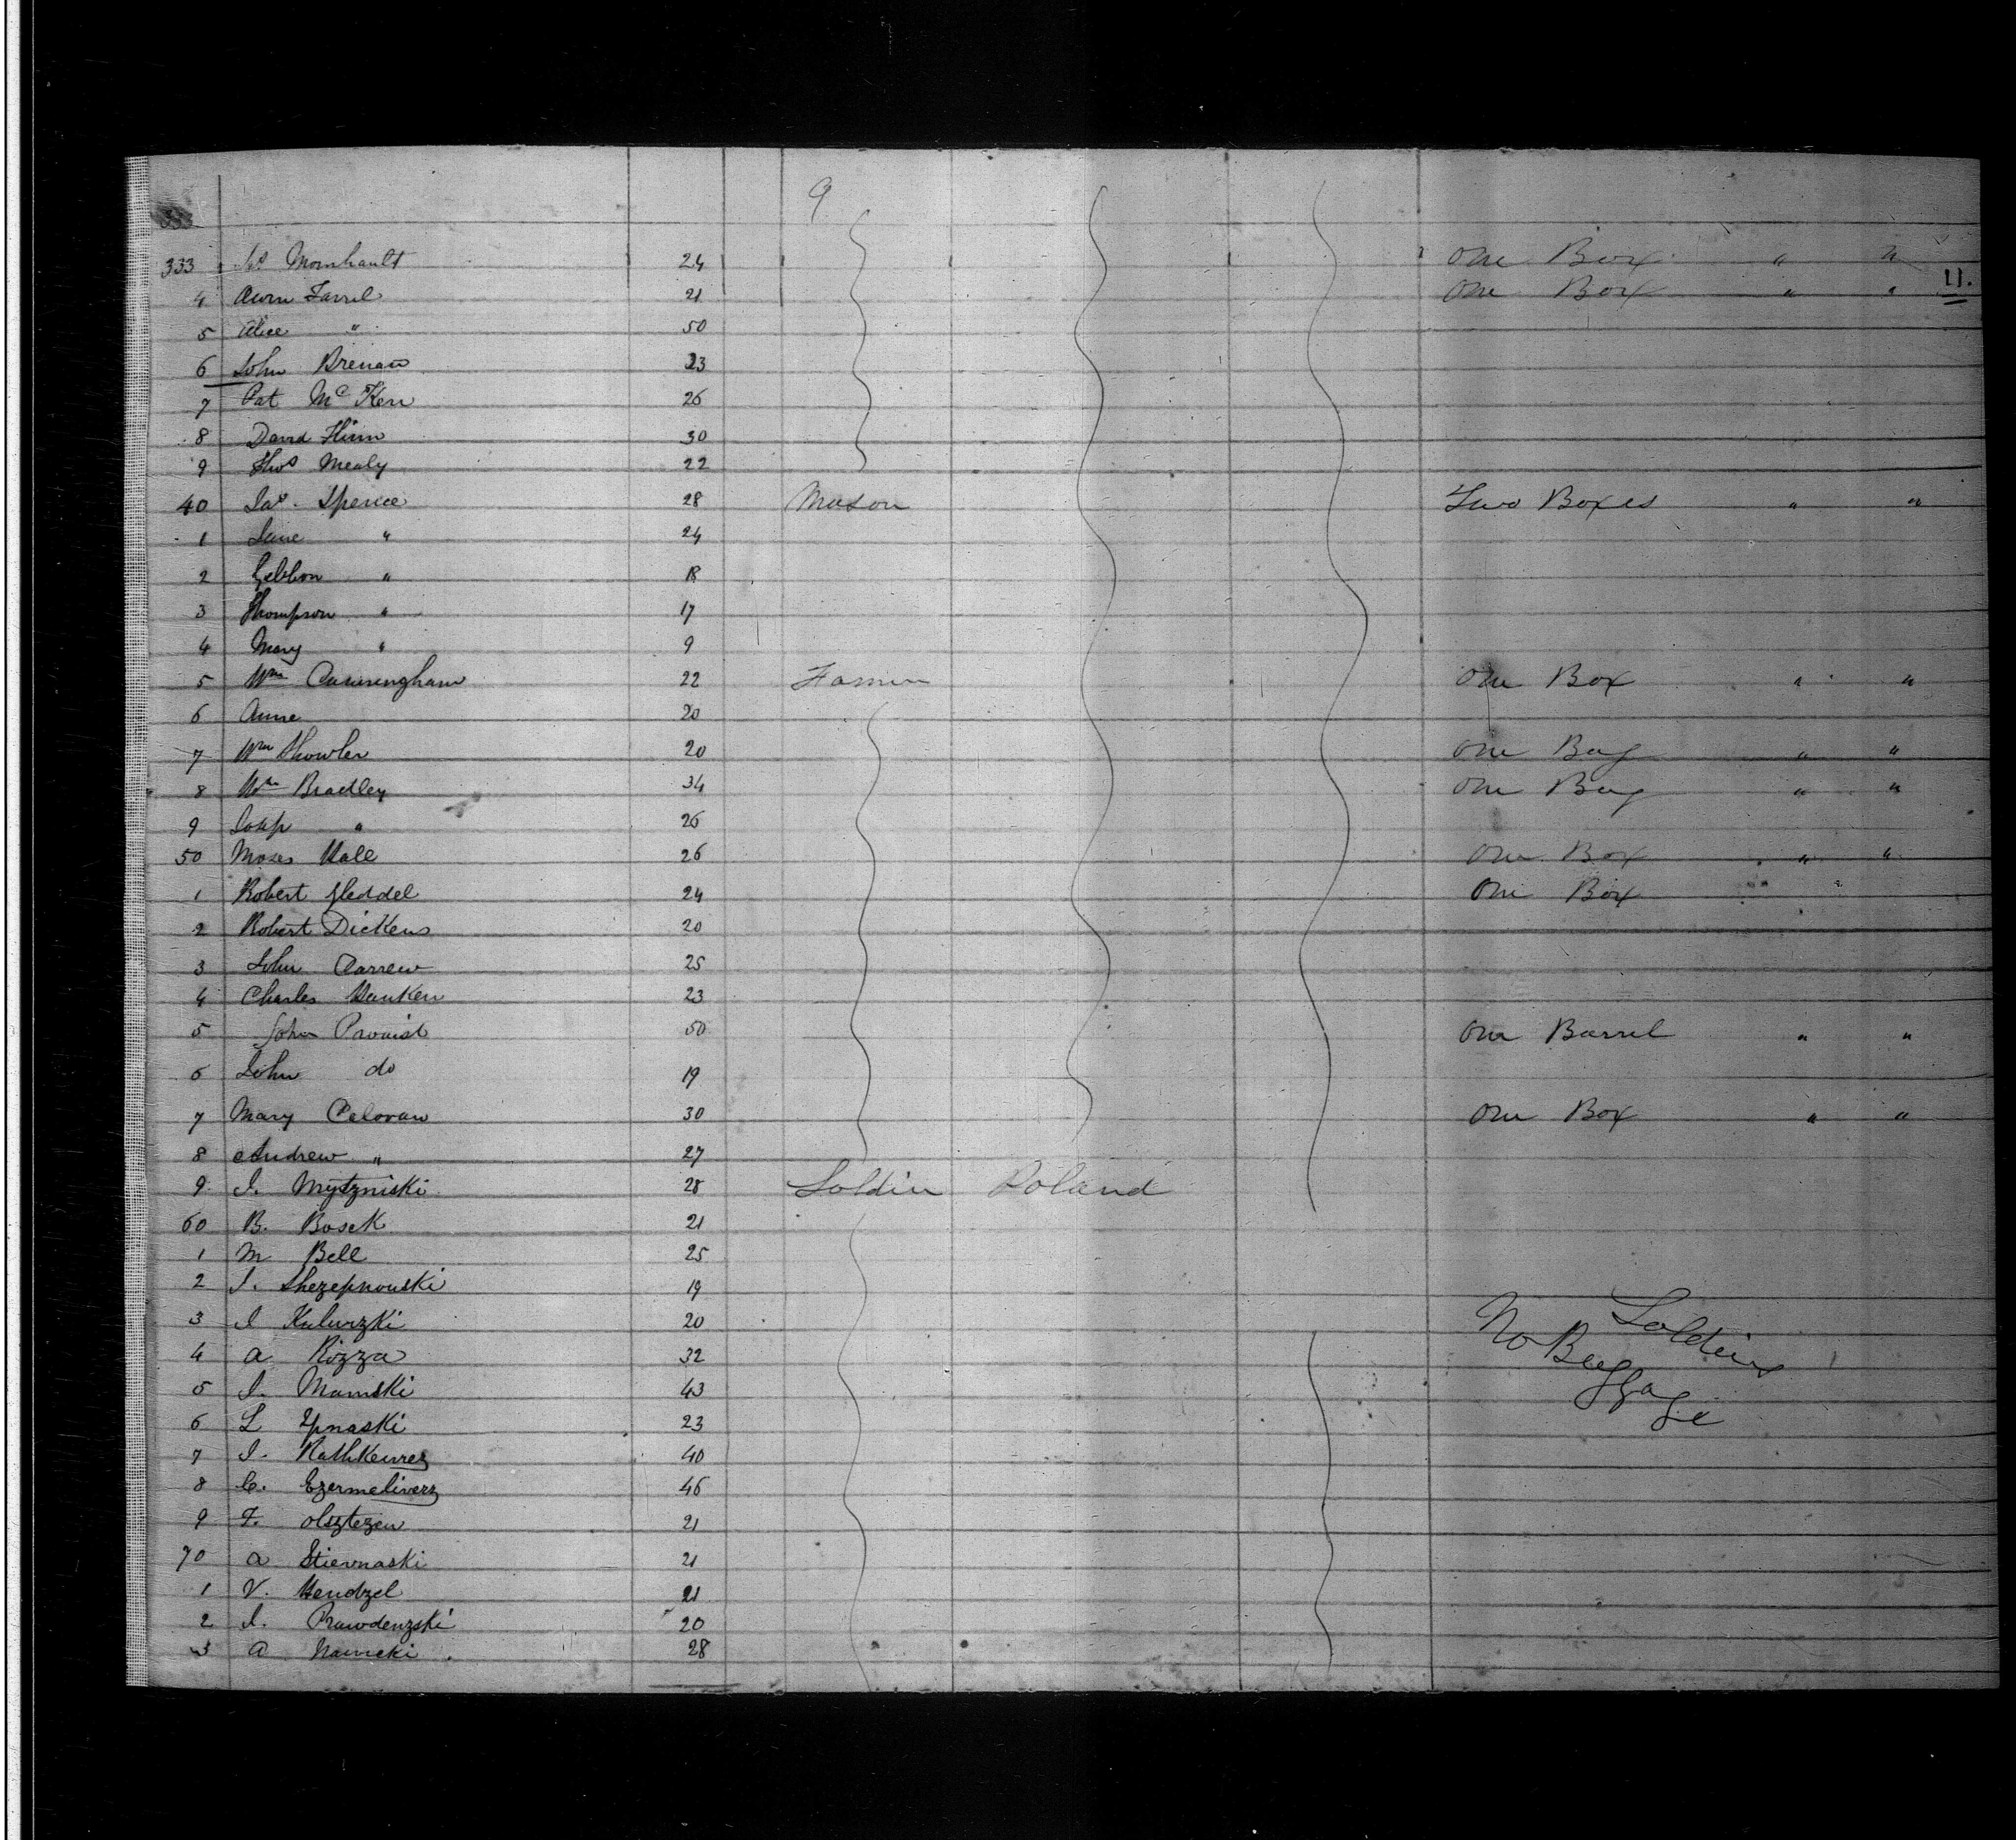 9
333
333 Jas Mornhault 24 One Box " "
11.
4 Ann Farrel 21 One Box " "
5 Alice " 50
6 John Brenan 23
7 Pat McKen 26
8 David Flinn 30
9 Thos Mealy 22
40 Jas. Spence 28 Mason Two Boxes " "
1 Jane " 24
2 Gibbon " 18
3 Thompson " 17
4 Mary " 9
5 Wm Cunningham 22 Farmer One Box " "
6 Anne 20
7 Wm Showler 20 One Bag " "
8 Wm Bradley 34 One Bag " "
9 " 26
50 Moses Hall 26 One Box " "
1 Robert Heddel 24 One Box
2 Robert Dickens 20
3 John Carrew 25
4 Charles Hanken 23
5 John Provist 50 One Barrel " "
6 John do 19
7 Mary Celovan 30 One Box " "
8 Andrew " 27
9 I. Mytzniski 28 Soldier Poland
60 B. Bosek 21
1 M Bell 25
2 I. Shezepnouski 19
3 I Kulurzki 20
Soldiers
No Baggage
4 A Rozza 32
5 I. Mamski 43
6 L Ypnaski 23
7 I. Rathkeurez 40
8 C. Ezermeliverz 46
9 F. Olsztezen 21
70 A Stiernaski 21
1 V. Hendzel 21
2 I. Prawdenzski 20
3 A Nawicki 28